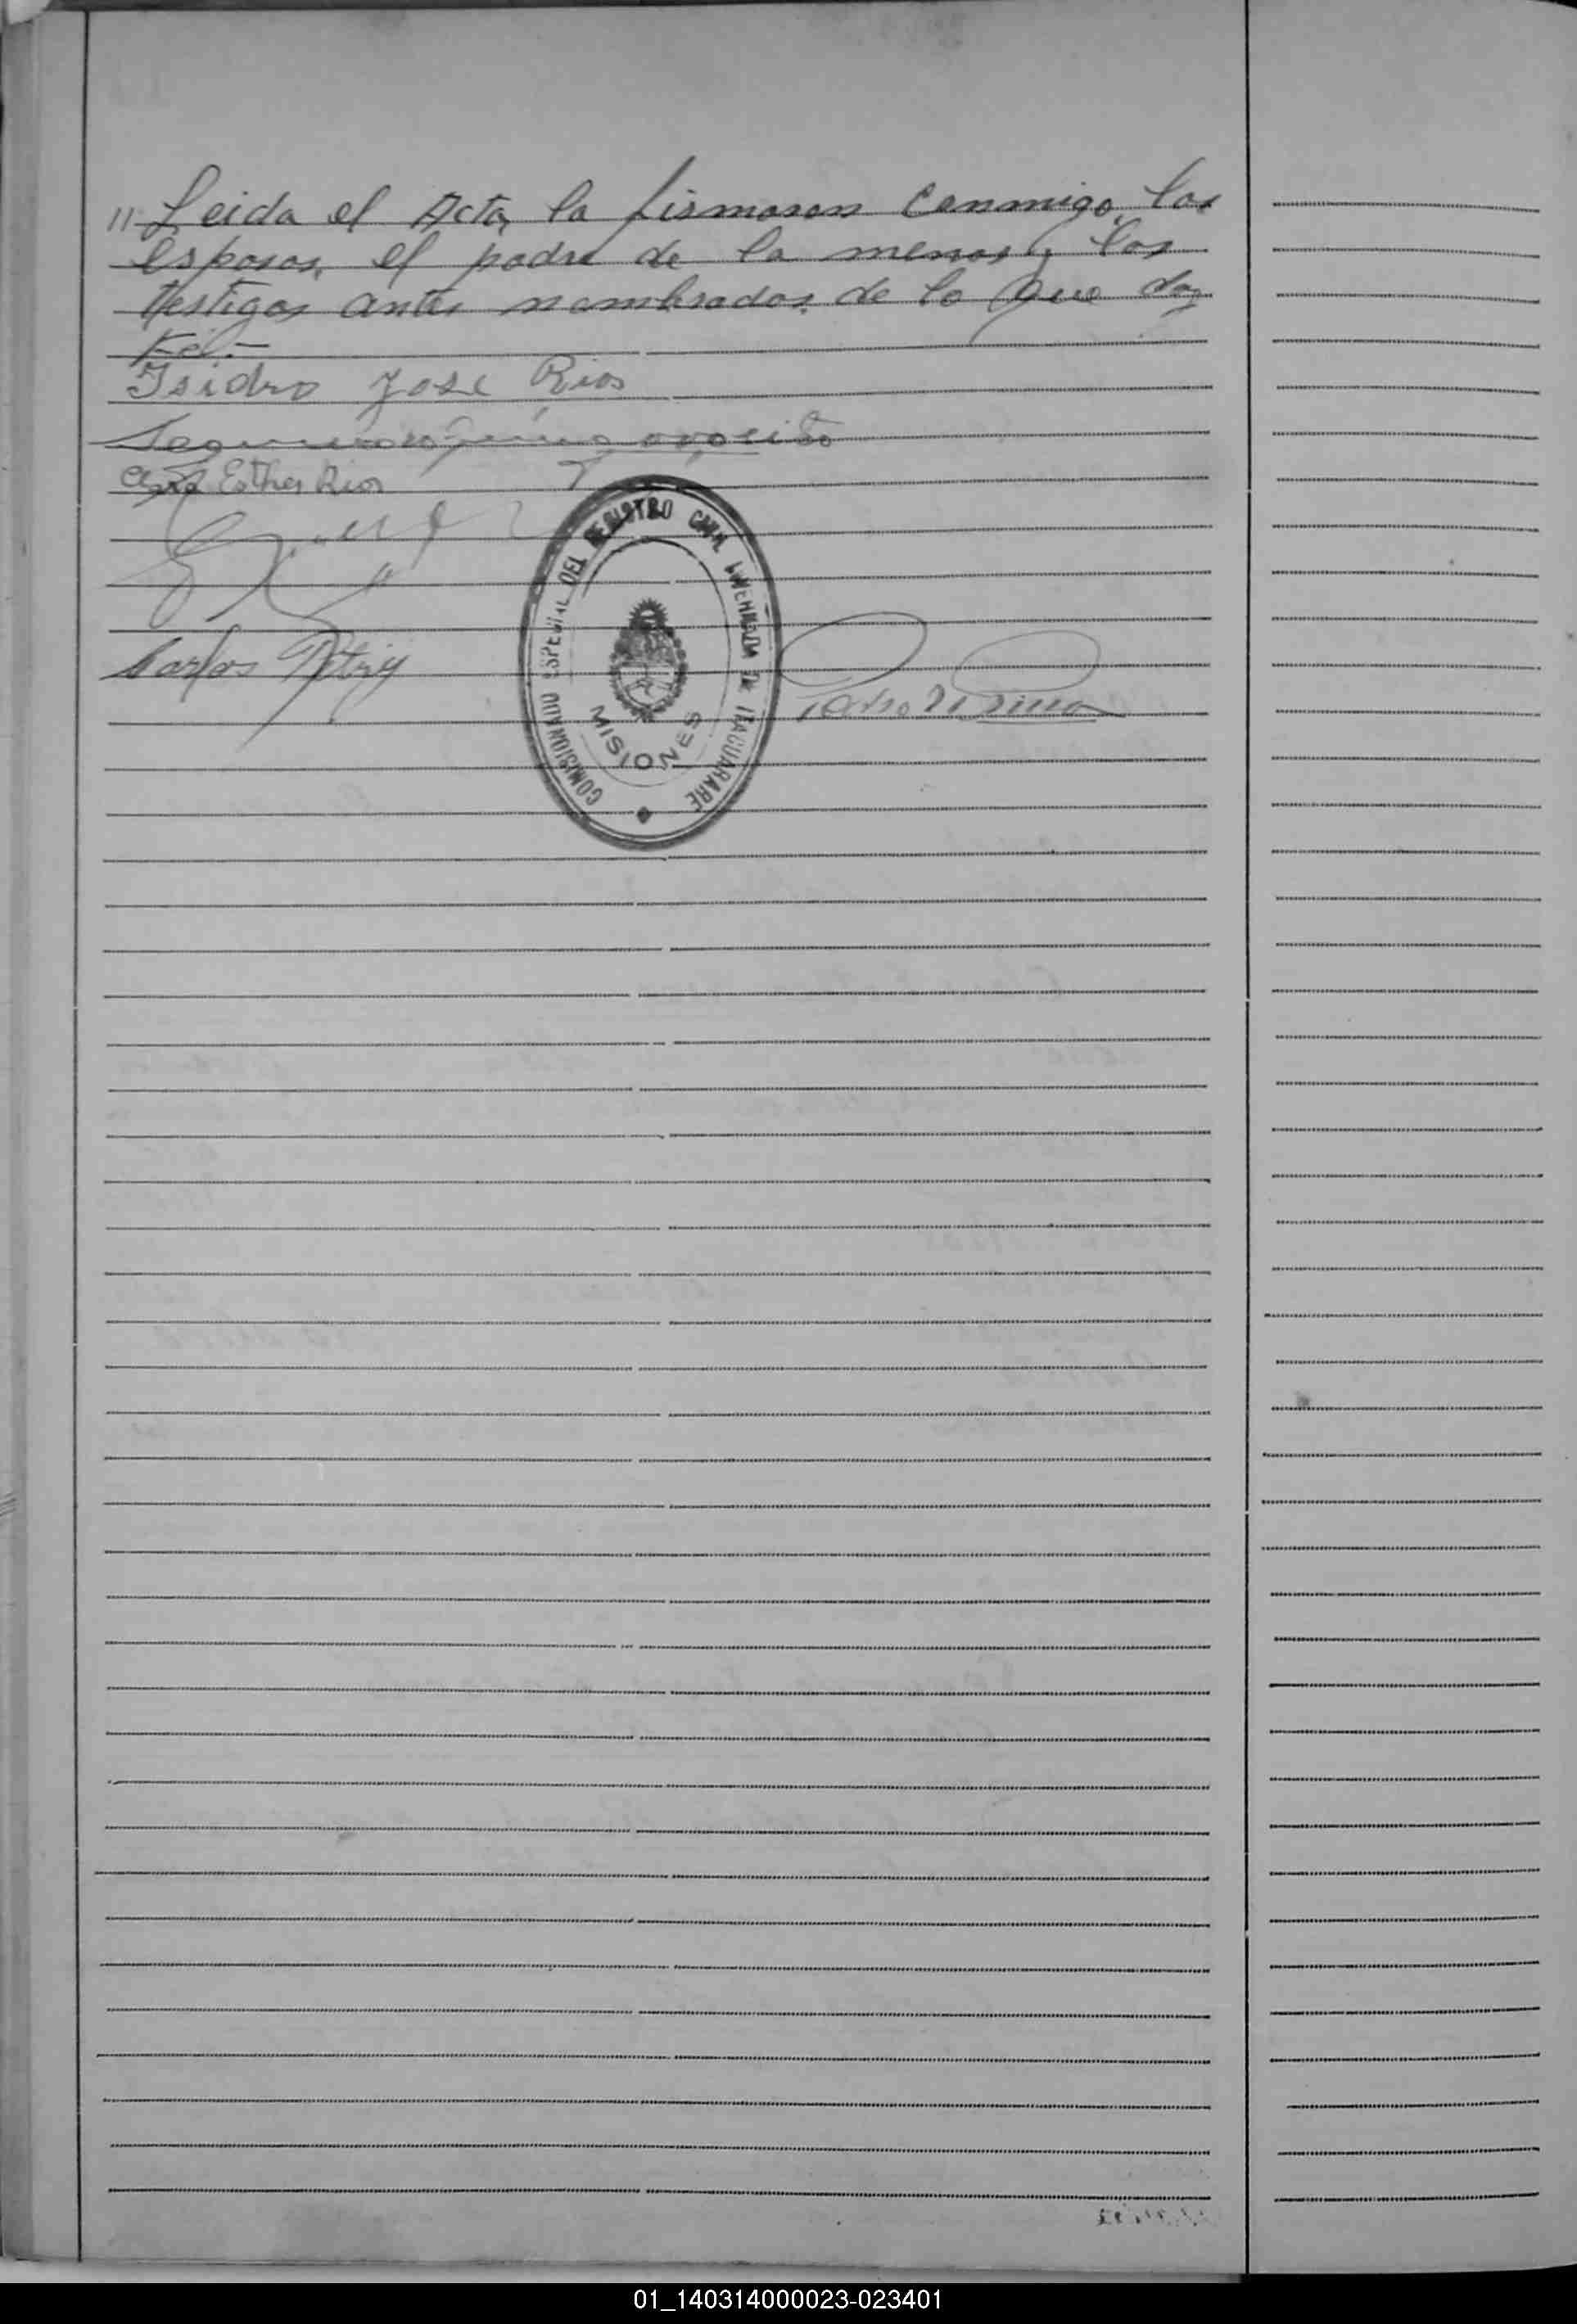 11 Leida el Acta, la firmaron conmigo, los
esposos, el padre de la menor y los
testigos antes nombrados, de lo que doy
Fé.-
Isidro Jose Rios
Esther Rios
Carlos Petry
COMISIONADO ESPECIAL DEL REGISTRO CIVIL
ITACUARARE
MISIONES
01_140314000023-023401